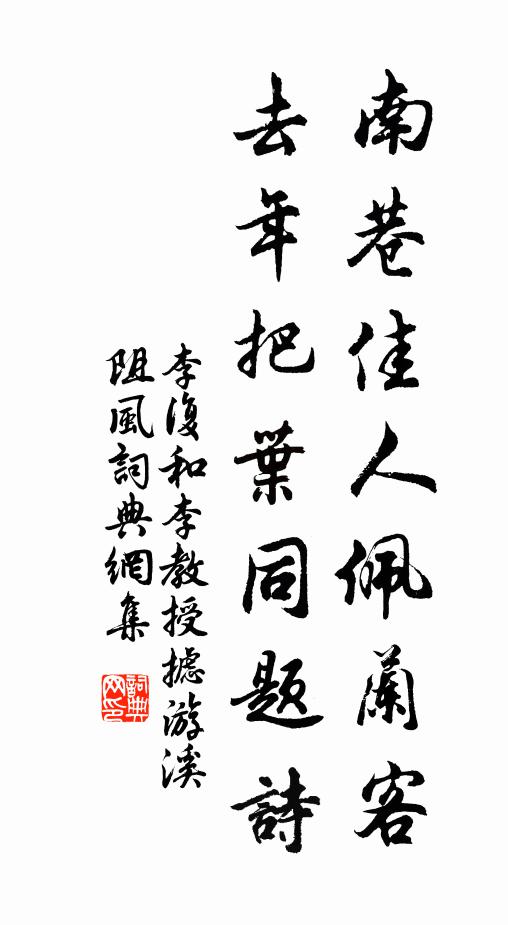 南巷佳人佩蘭客
去年把葉同題詩
李復和李教授摅游溪
阻風詞典網集
詞典网印